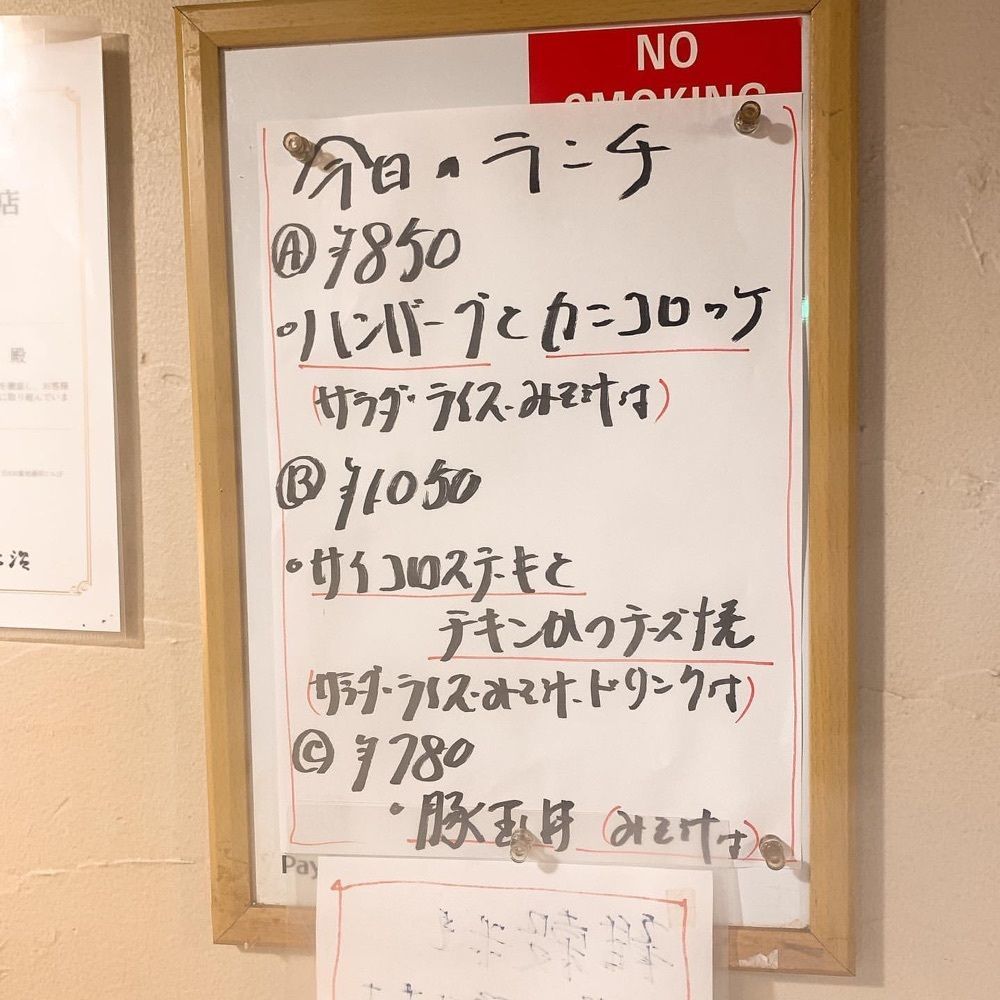 NO
SMOKING
今日のランチ
Ⓐ ¥850
・ハンバーグとカニコロッケ
(サラダ・ライス・みそ汁付)
Ⓑ ¥1050
・サイコロステーキと
チキンカツチーズ焼
(サラダ・ライス・みそ汁・ドリンク付)
Ⓒ ¥780
・豚玉丼 (みそ汁付)
Pay
店
殿
を徹底し、お客様
に取り組んでいま